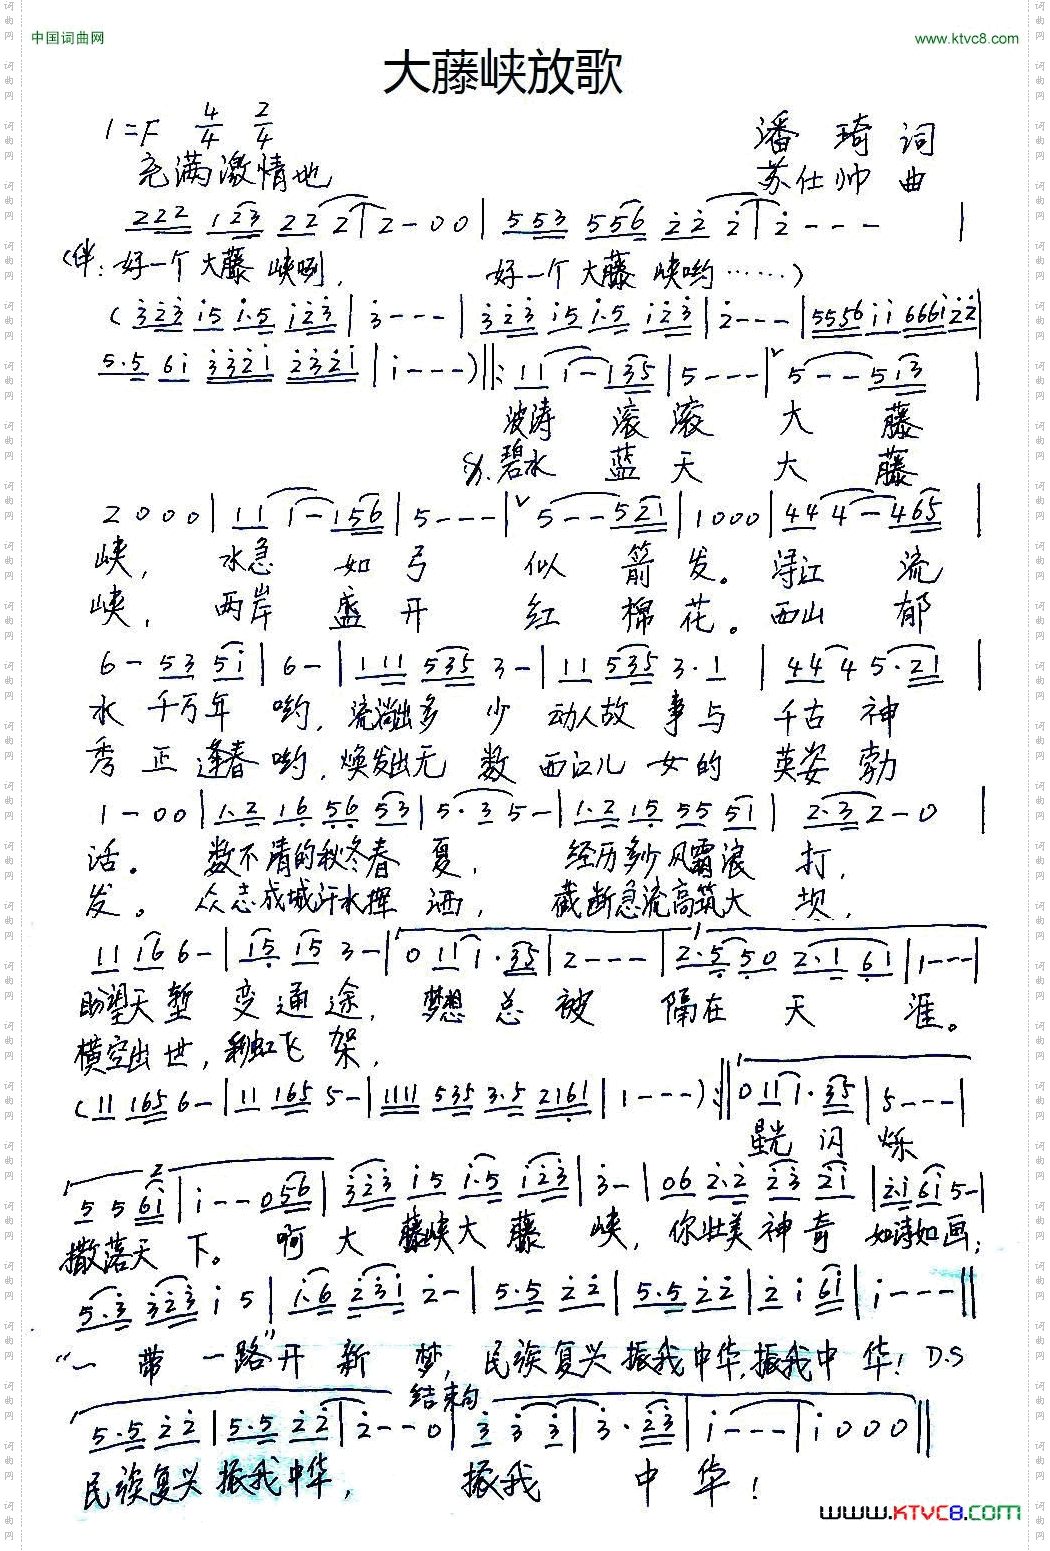 中国词曲网
www.ktvc8.com
大藤峡放歌
1=F 4/4 2/4
潘琦 词
充满激情地
苏仕帅 曲
222 123 22 2 | 2-00 | 553 556 22 2 | 2--- |
(伴:好一个大藤峡咧, 好一个大藤峡哟……)
(323 15 1·5 123 | 3--- | 323 15 1·5 123 | 2--- | 5556 11 666122 |
5·5 61 3321 2321 | 1---) ‖: 11 1-135 | 5--- | 5--513 |
波涛 滚滚 大 藤
(2).碧水 蓝天 大 藤
2000 | 11 1-156 | 5--- | 5--521 | 1000 | 44 4-465 |
峡, 水急 如弓 似 箭发。浔江 流
峡, 两岸 盛开 红 棉花。西山 郁
6- 53 51 | 6- | 111 535 3- | 11 535 3·1 | 44 4 5·21 |
水 千万年 哟,流淌出多 少 动人故 事与 千古 神
秀 正逢春哟,焕发出无 数 西江儿 女的 英姿 勃
1-00 | 1·2 16 56 53 | 5·3 5- | 1·2 15 55 51 | 2·3 2-0 |
话。 数不清的秋冬春 夏, 经历多少风霸浪 打,
发。 众志成城汗水挥 洒, 截断急流高筑大 坝,
11 16 6- | 15 15 3- | 0 11 1·35 | 2--- | 2·5 50 2·1 61 | 1--- |
盼望天堑 变通途, 梦想 总 被 隔在 天 涯。
横空出世,彩虹飞 架,
(11 165 6- | 11 165 5- | 1111 535 3·5 2161 | 1---) :‖ 0 11 1·35 | 5--- |
星光 闪 烁
2
5 5 61 | 1--056 | 323 15 1·5 123 | 3- | 06 2·2 23 21 | 2·1 61 5- |
撒落天 下。 啊 大 藤峡大 藤 峡,你壮美神奇 如诗如画;
5·3 323 1 5 | 1·6 231 2- | 5·5 22 | 5·5 22 | 2 1 61 | 1--- ‖
“一 带 一路”开 新 梦,民族复兴 振我中华,振我中华! D.S
结束句
5·5 22 | 5·5 22 2 | 2--0 | 3 3 3 | 3·23 | 1--- | 1000 ‖
民族复兴 振我中华, 振我 中 华!
www.KTVC8.com